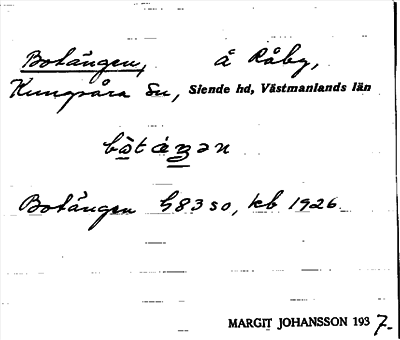 Botängen, å Råby,
Kungsåra sn, Siende hd, Västmanlands län
Botängen h83so, kb 1926.
MARGIT JOHANSSON 1937.